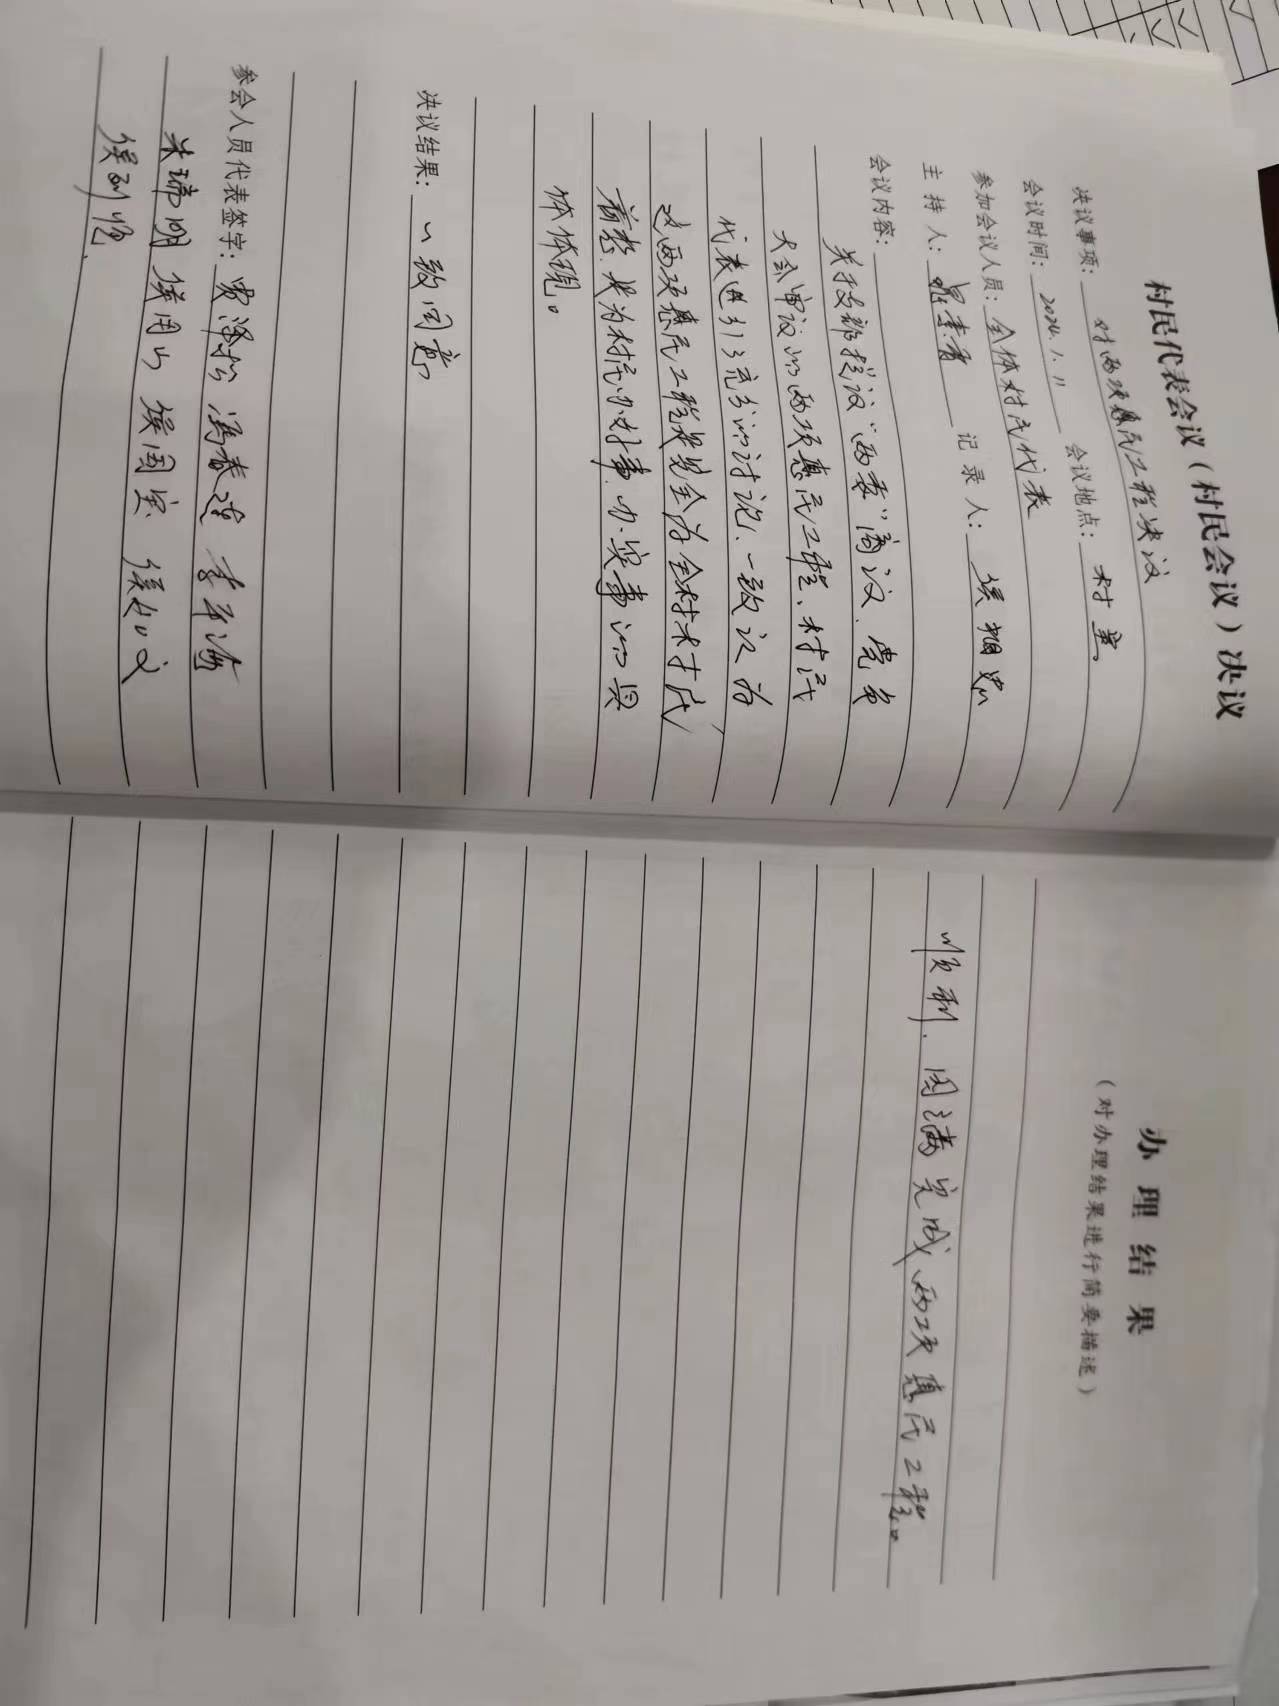 村民代表会议（村民会议）决议
决议事项：对两项惠民工程决议
会议时间：2024.1.11 会议地点：村室
参加会议人员：全体村民代表
主持人： 记录人：
会议内容：
关于支部提议"两委"商议、党员
大会审议的两项惠民工程、村民
代表进行了充分的讨论、一致认为
这两项惠民工程是完全为全村村民
着想、是为村民办好事、办实事的具
体体现。
决议结果：一致同意
参会人员代表签字：
侯国宝
办理结果
（对办理结果进行简要描述）
顺利、圆满完成两项惠民工程。